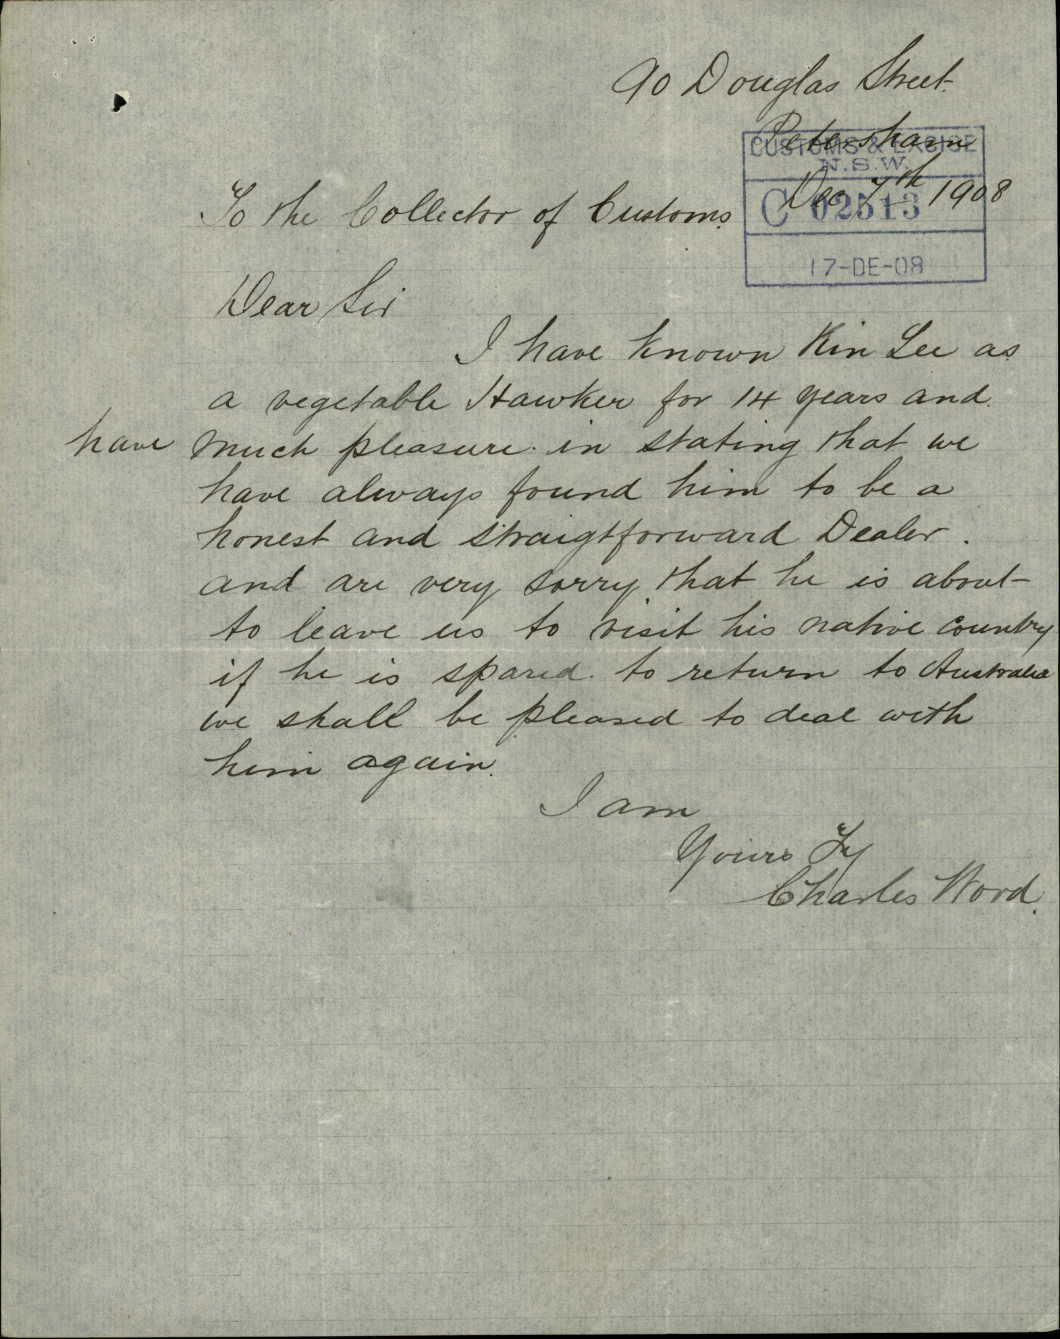 90 Douglas Street.
Petersham
CUSTOMS & EXCISE
N.S.W.
Dec 7th 1908
To the Collector of Customs.
C 02513
17-DE-08
Dear Sir
I have known Kin Lee as
a vegetable Hawker for 14 years and.
have much pleasure in stating that we
have always found him to be a
honest and straigtforward Dealer.
and are very sorry that he is about
to leave us to visit his native country
if he is spared. to return to Australia
we shall be pleased to deal with
him again.
I am
Yours Fy
Charles Word.